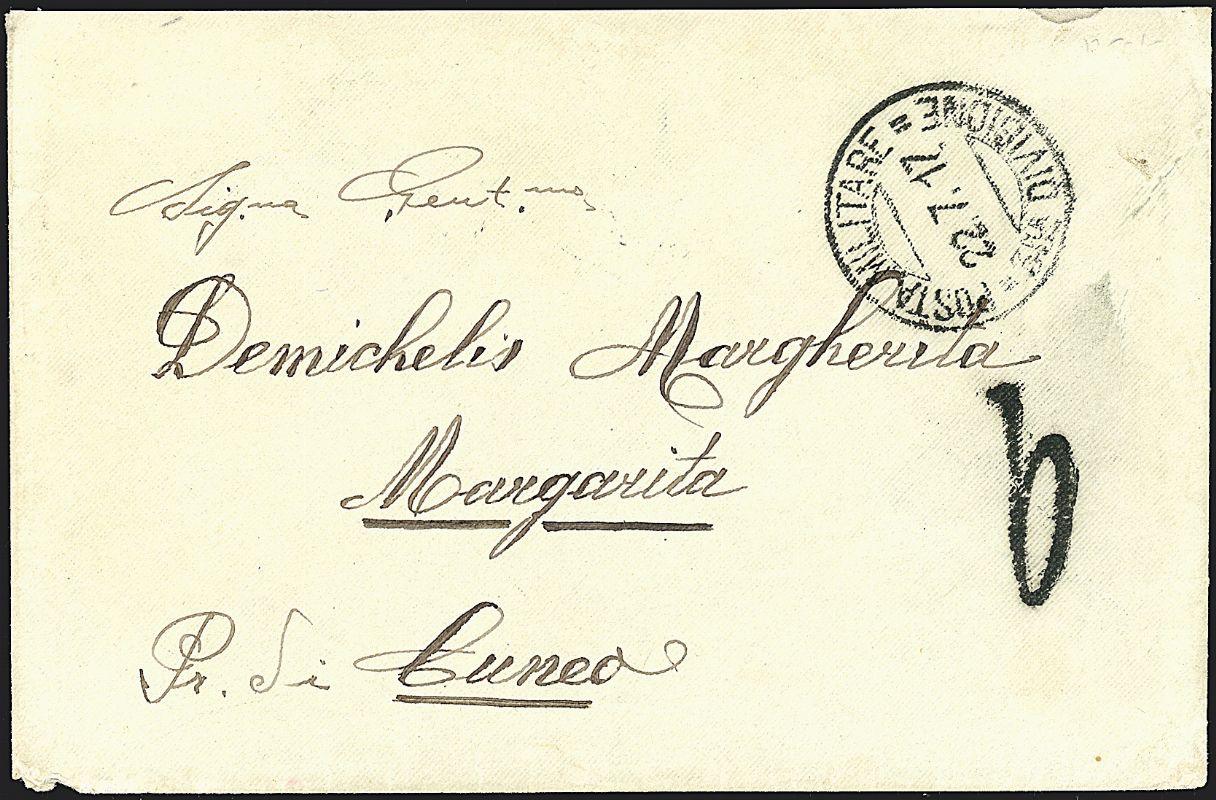 Sig.na Gent.ma
Demichelis Margherita
Margarita
Pr. di Cuneo
POSTA MILITARE = DIVISIONE =
22.7.17